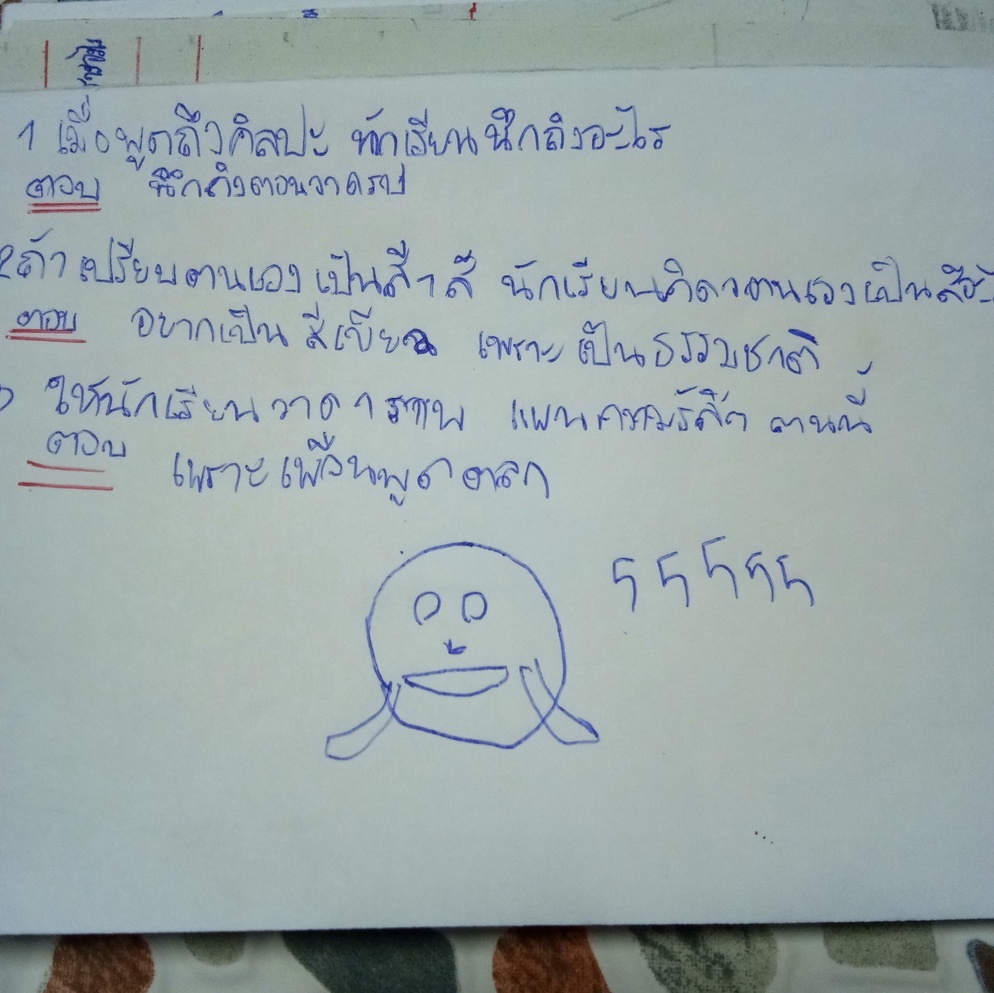 1 เมื่อพูดถึงศิลปะ นักเรียนนึกถึงอะไร
ตอบ นึกถึงตอนวาดรูป
2 ถ้าเปรียบตนเองเป็นสี 1 สี นักเรียนคิดว่าตนเองเป็นสีอะ
ตอบ อยากเป็น สีเขียว เพราะ เป็นธรรมชาติ
ให้นักเรียนวาด 1 ภาพ แทนความรู้สึก ตอนนี้
ตอบ เพราะเพื่อนพูดตลก
55555